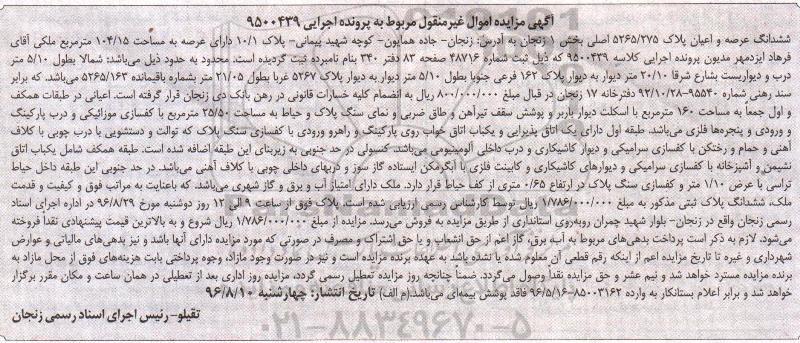 آگهی مزایده اموال غیرمنقول مربوط به پرونده اجرایی ۹۵۰۰۴۳۹
ششدانگ عرصه و اعیان پلاک ۵۲۶۵/۲۷۵ اصلی بخش ۱ زنجان به آدرس: زنجان- جاده همایون- کوچه شهید پیمانی- پلاک ۱۰/۱ دارای عرصه به مساحت ۱۰۴/۱۵ مترمربع ملکی آقای
فرهاد ایزدمهر مدیون پرونده اجرایی کلاسه ۹۵۰۰۴۳۹ که ذیل ثبت شماره ۴۸۷۱۶ صفحه ۸۳ دفتر ۳۴۰ بنام نامبرده ثبت گردیده است. محدود به حدود ذیل می‌باشد: شمالا بطول ۵/۱۰ متر
درب و دیواریست بشارع شرقا ۲۰/۱۰ متر دیوار به دیوار پلاک ۱۶۲ فرعی جنوبا بطول ۵/۱۰ متر دیوار به دیوار پلاک ۵۲۶۷ غربا بطول ۲۱/۰۵ متر بشماره باقیمانده ۵۲۶۵/۱۶۳ می‌باشد. که برابر
سند رهنی شماره ۹۵۵۴۰-۹۲/۱۰/۲۸ دفترخانه ۱۷ زنجان در قبال مبلغ ۸۰۰/۰۰۰/۰۰۰ ریال به انضمام کلیه خسارات قانونی در رهن بانک دی زنجان قرار گرفته است. اعیانی در طبقات همکف
و اول جمعاً به مساحت ۱۶۰ مترمربع با اسکلت دیوار باربر و پوشش سقف تیرآهن و طاق ضربی و نمای سنگ پلاک و حیاط به مساحت ۲۵/۵۰ مترمربع با کفسازی موزائیکی و درب پارکینگ
و ورودی و پنجره‌ها فلزی می‌باشد. طبقه اول دارای یک اتاق پذیرایی و یکباب اتاق خواب روی پارکینگ و راهرو ورودی با کفسازی سنگ پلاک که توالت و دستشویی با درب چوبی با کلاف
آهنی و حمام و رختکن با کفسازی سرامیکی و دیوار کاشیکاری و درب داخلی آلومینیومی می‌باشد. کنسولی در حد جنوبی به زیربنای این طبقه اضافه شده است. طبقه همکف شامل یکباب اتاق
نشیمن و آشپزخانه با کفسازی سرامیکی و دیوارهای کاشیکاری و کابینت فلزی با آبگرمکن ایستاده گاز سوز و دربهای داخلی چوبی با کلاف آهنی می‌باشد. در حد جنوبی این طبقه داخل حیاط
تراسی با عرض ۱/۱۰ متر و کفسازی سنگ پلاک در ارتفاع ۰/۶۵ متری از کف حیاط قرار دارد. ملک دارای امتیاز آب و برق و گاز شهری می‌باشد. که باعنایت به مراتب فوق و کیفیت و قدمت
ملک، ششدانگ پلاک ثبتی مذکور به مبلغ ۱/۷۸۶/۰۰۰/۰۰۰ ریال توسط کارشناس رسمی ارزیابی شده است. پلاک فوق از ساعت ۹ الی ۱۲ روز دوشنبه مورخ ۹۶/۸/۲۹ در اداره اجرای اسناد
رسمی زنجان واقع در زنجان- بلوار شهید چمران روبه‌روی استانداری از طریق مزایده به فروش می‌رسد. مزایده از مبلغ ۱/۷۸۶/۰۰۰/۰۰۰ ریال شروع و به بالاترین قیمت پیشنهادی نقداً فروخته
می‌شود. لازم به ذکر است پرداخت بدهی‌های مربوط به آب، برق، گاز اعم از حق انشعاب و یا حق اشتراک و مصرف در صورتی که مورد مزایده دارای آنها باشد و نیز بدهی‌های مالیاتی و عوارض
شهرداری و غیره تا تاریخ مزایده اعم از اینکه رقم قطعی آن معلوم شده یا نشده باشد به عهده برنده مزایده است و نیز در صورت وجود مازاد، وجوه پرداختی بابت هزینه‌های فوق از محل مازاد به
برنده مزایده مسترد خواهد شد و نیم عشر و حق مزایده نقداً وصول می‌گردد. ضمناً چنانچه روز مزایده تعطیل رسمی گردد، مزایده روز اداری بعد از تعطیلی در همان ساعت و مکان مقرر برگزار
خواهد شد و برابر اعلام بستانکار به وارده ۸۵۰۰۳۱۶۲-۹۶/۵/۱۶ فاقد پوشش بیمه‌ای می‌باشد.(م الف) تاریخ انتشار: چهارشنبه ۹۶/۸/۱۰
تقیلو- رئیس اجرای اسناد رسمی زنجان
۰۲۱-۸۸۳۴۹۶۷۰-۵